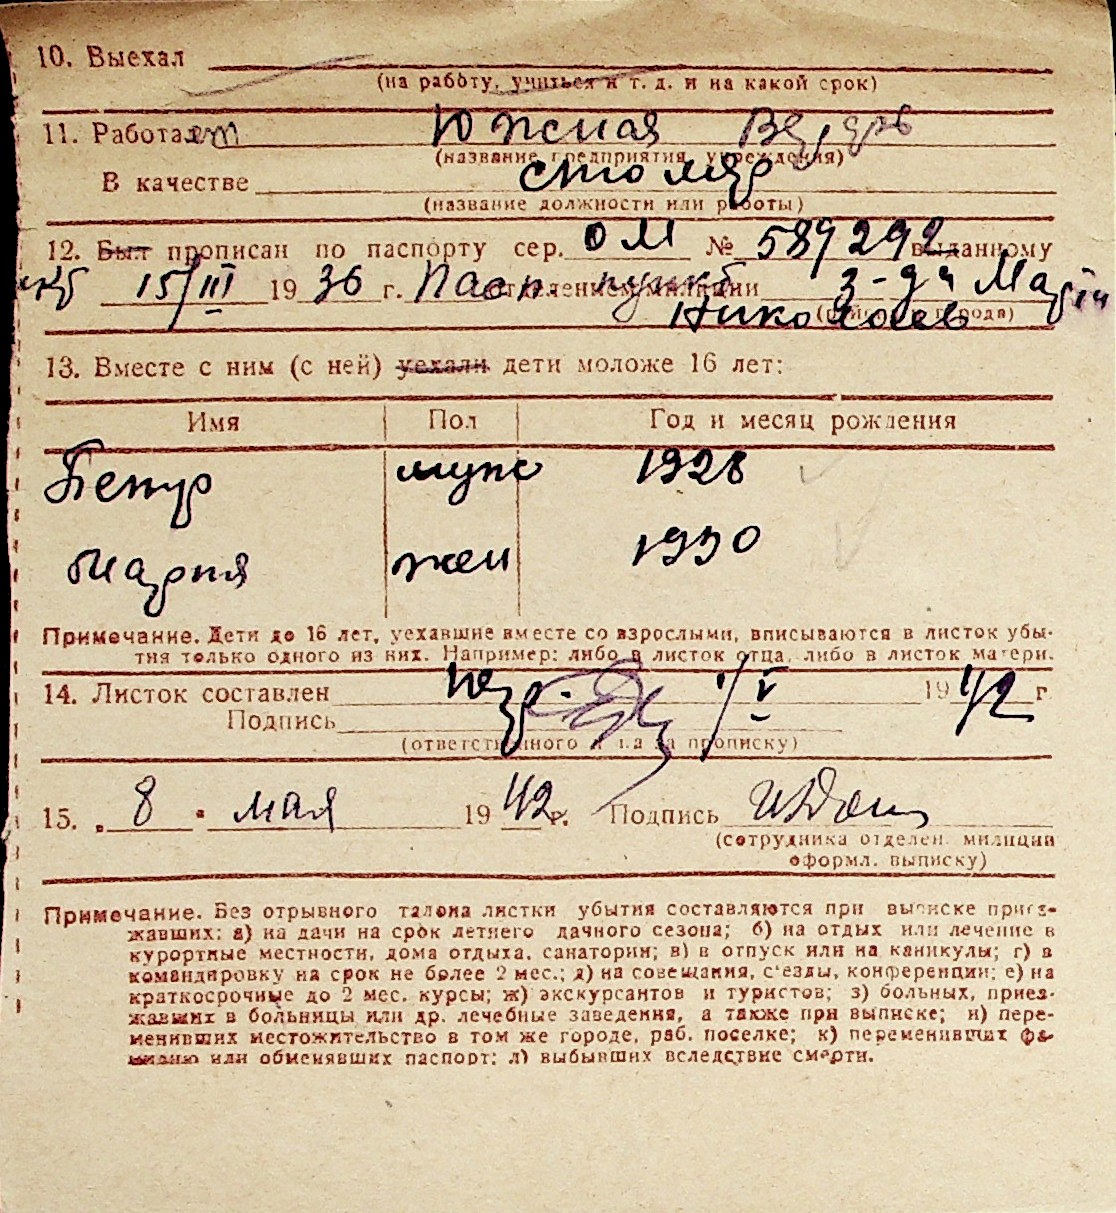 10. Выехал
(на работу, учиться и т. д. и на какой срок)
11. Работает Южная Верфь
(название предприятия, учреждения)
В качестве столяр
(название должности или работы)
12. Был прописан по паспорту сер. ОМ № 589292 выданному
15/III 1936 г. Пасп. пункт отделением милиции З-да Марти
Николаев (района, города)
13. Вместе с ним (с ней) уехали дети моложе 16 лет:
Имя Пол Год и месяц рождения
Петр муж 1928
Мария жен 1930
Примечание. Дети до 16 лет, уехавшие вместе со взрослыми, вписываются в листок убы-
тия только одного из них. Например: либо в листок отца, либо в листок матери.
14. Листок составлен 1/V 1942 г
Подпись
(ответственного лица за прописку)
15. „8" мая 1942 г. Подпись
(сотрудника отделен. милиции
оформл. выписку)
Примечание. Без отрывного талона листки убытия составляются при выписке приез-
жавших: а) на дачи на срок летнего дачного сезона; б) на отдых или лечение в
курортные местности, дома отдыха, санатории; в) в отпуск или на каникулы; г) в
командировку на срок не более 2 мес.; д) на совещания, с'езды, конференции; е) на
краткосрочные до 2 мес. курсы; ж) экскурсантов и туристов; з) больных, приез-
жавших в больницы или др. лечебные заведения, а также при выписке; и) пере-
менивших местожительство в том же городе, раб. поселке; к) переменивших фа-
милию или обменявших паспорт; л) выбывших вследствие смерти.